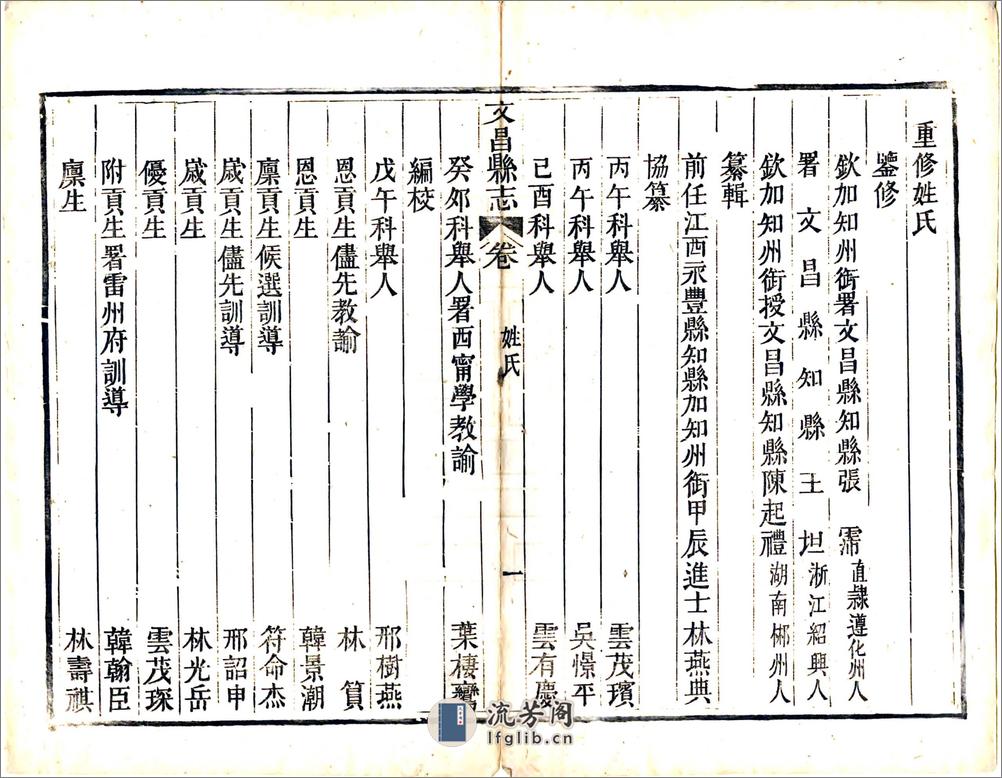 重修姓氏
鑒修
欽加知州銜署文昌縣知縣張霈直隸遵化州人
署文昌縣知縣王坦浙江紹興人
欽加知州銜授文昌縣知縣陳起禮湖南郴州人
纂輯
前任江西永豐縣知縣加知州銜甲辰進士林燕典
協纂
丙午科舉人 雲茂瑸
丙午科舉人 吳憬平
己酉科舉人 雲有慶
文昌縣志 卷 姓氏 一
癸夘科舉人署西甯學教諭 葉棲鸞
編校
戊午科舉人 邢樹燕
恩貢生儘先教諭 林篔
恩貢生 韓景潮
廩貢生候選訓導 符命杰
歲貢生儘先訓導 邢詔申
歲貢生 林光岳
優貢生 雲茂琛
附貢生署雷州府訓導 韓翰臣
廩生 林壽祺
流芳阁
lfglib.cn